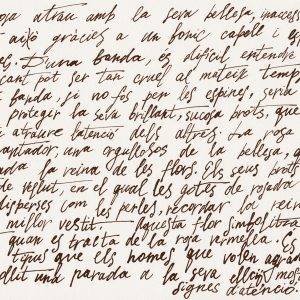 rosa atrau amb la seva bellesa, inacces
t això gràcies a un bonic capoll i es
es. D'una banda, és difícil entendre
cant pot ser tan cruel al mateix temp
banda, si no fos per les espines, seria
protegir la seva brillant, sucosa brots, que
atraure l'atenció dels altres. La rosa
cantador, una orgullosa de la bellesa, q
nada la reina de les flors. Els seus brots
de vellut en el qual les gotes de rosada
disperses com les perles, recordar la rein
millor vestit. Aquesta flor simbolitza
quan es tracta de la rosa vermella. Es
tipus que els homes que volen agrad
ollit una parada a la seva elecció, mos
signes d'atenció.